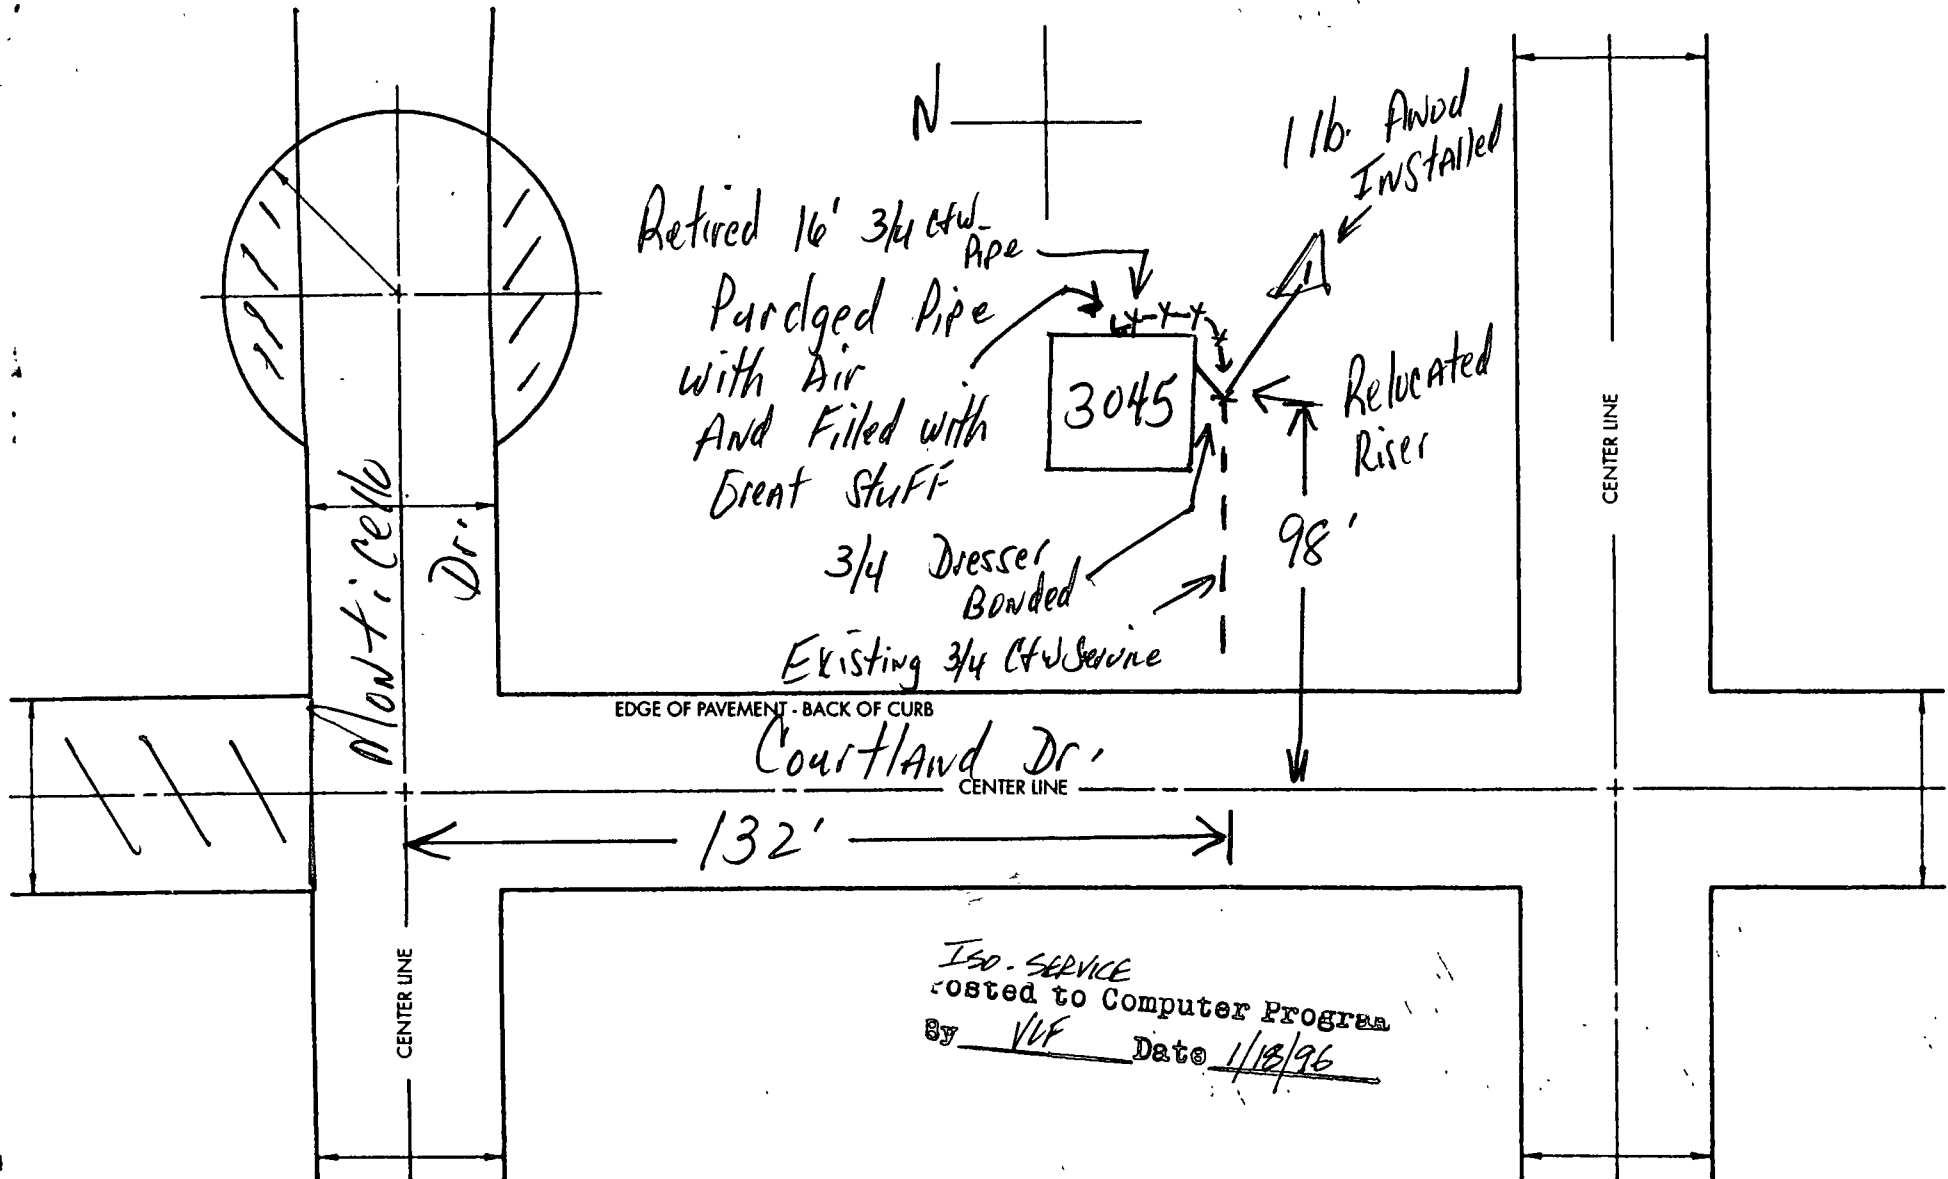 N
1 lb. Anod
Installed
Retired 16' 3/4 C+W
Pipe
Purdged Pipe
with Air
And Filled with
Great Stuff
3045
Relocated
Riser
98'
3/4 Dresser
Bonded
Existing 3/4 C+W Service
Monticello
Dr.
CENTER LINE
EDGE OF PAVEMENT - BACK OF CURB
Courtland Dr.
CENTER LINE
132'
CENTER LINE
Iso. SERVICE
Posted to Computer Program
By VLF Date 1/18/96